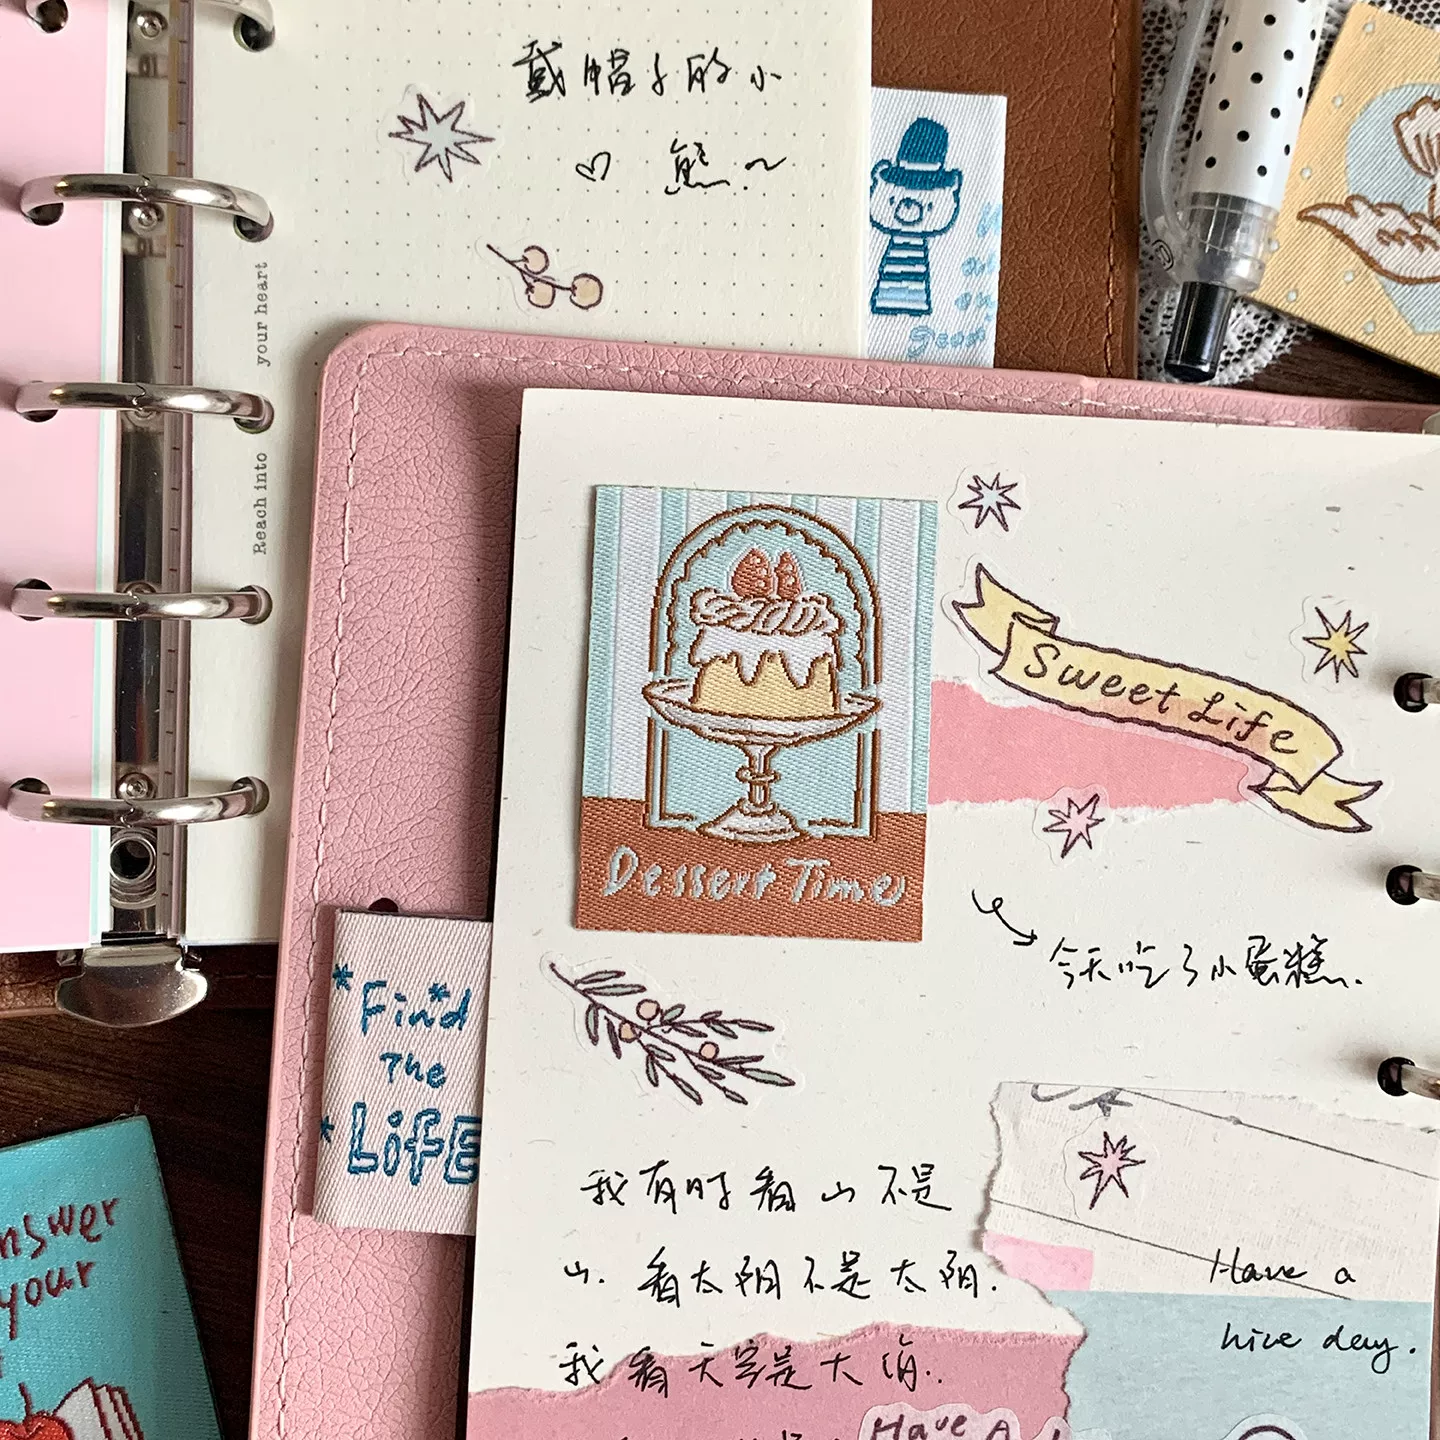 戴帽子的小
熊~
your heart
Reach into
Sweet Life
Dessert Time
今天吃了小蛋糕.
*Find*
The
*LifE
我有时看山不是
山.看太阳不是太阳.
我看天空是大海..
Have a
nice day.
Answer
your
Have A